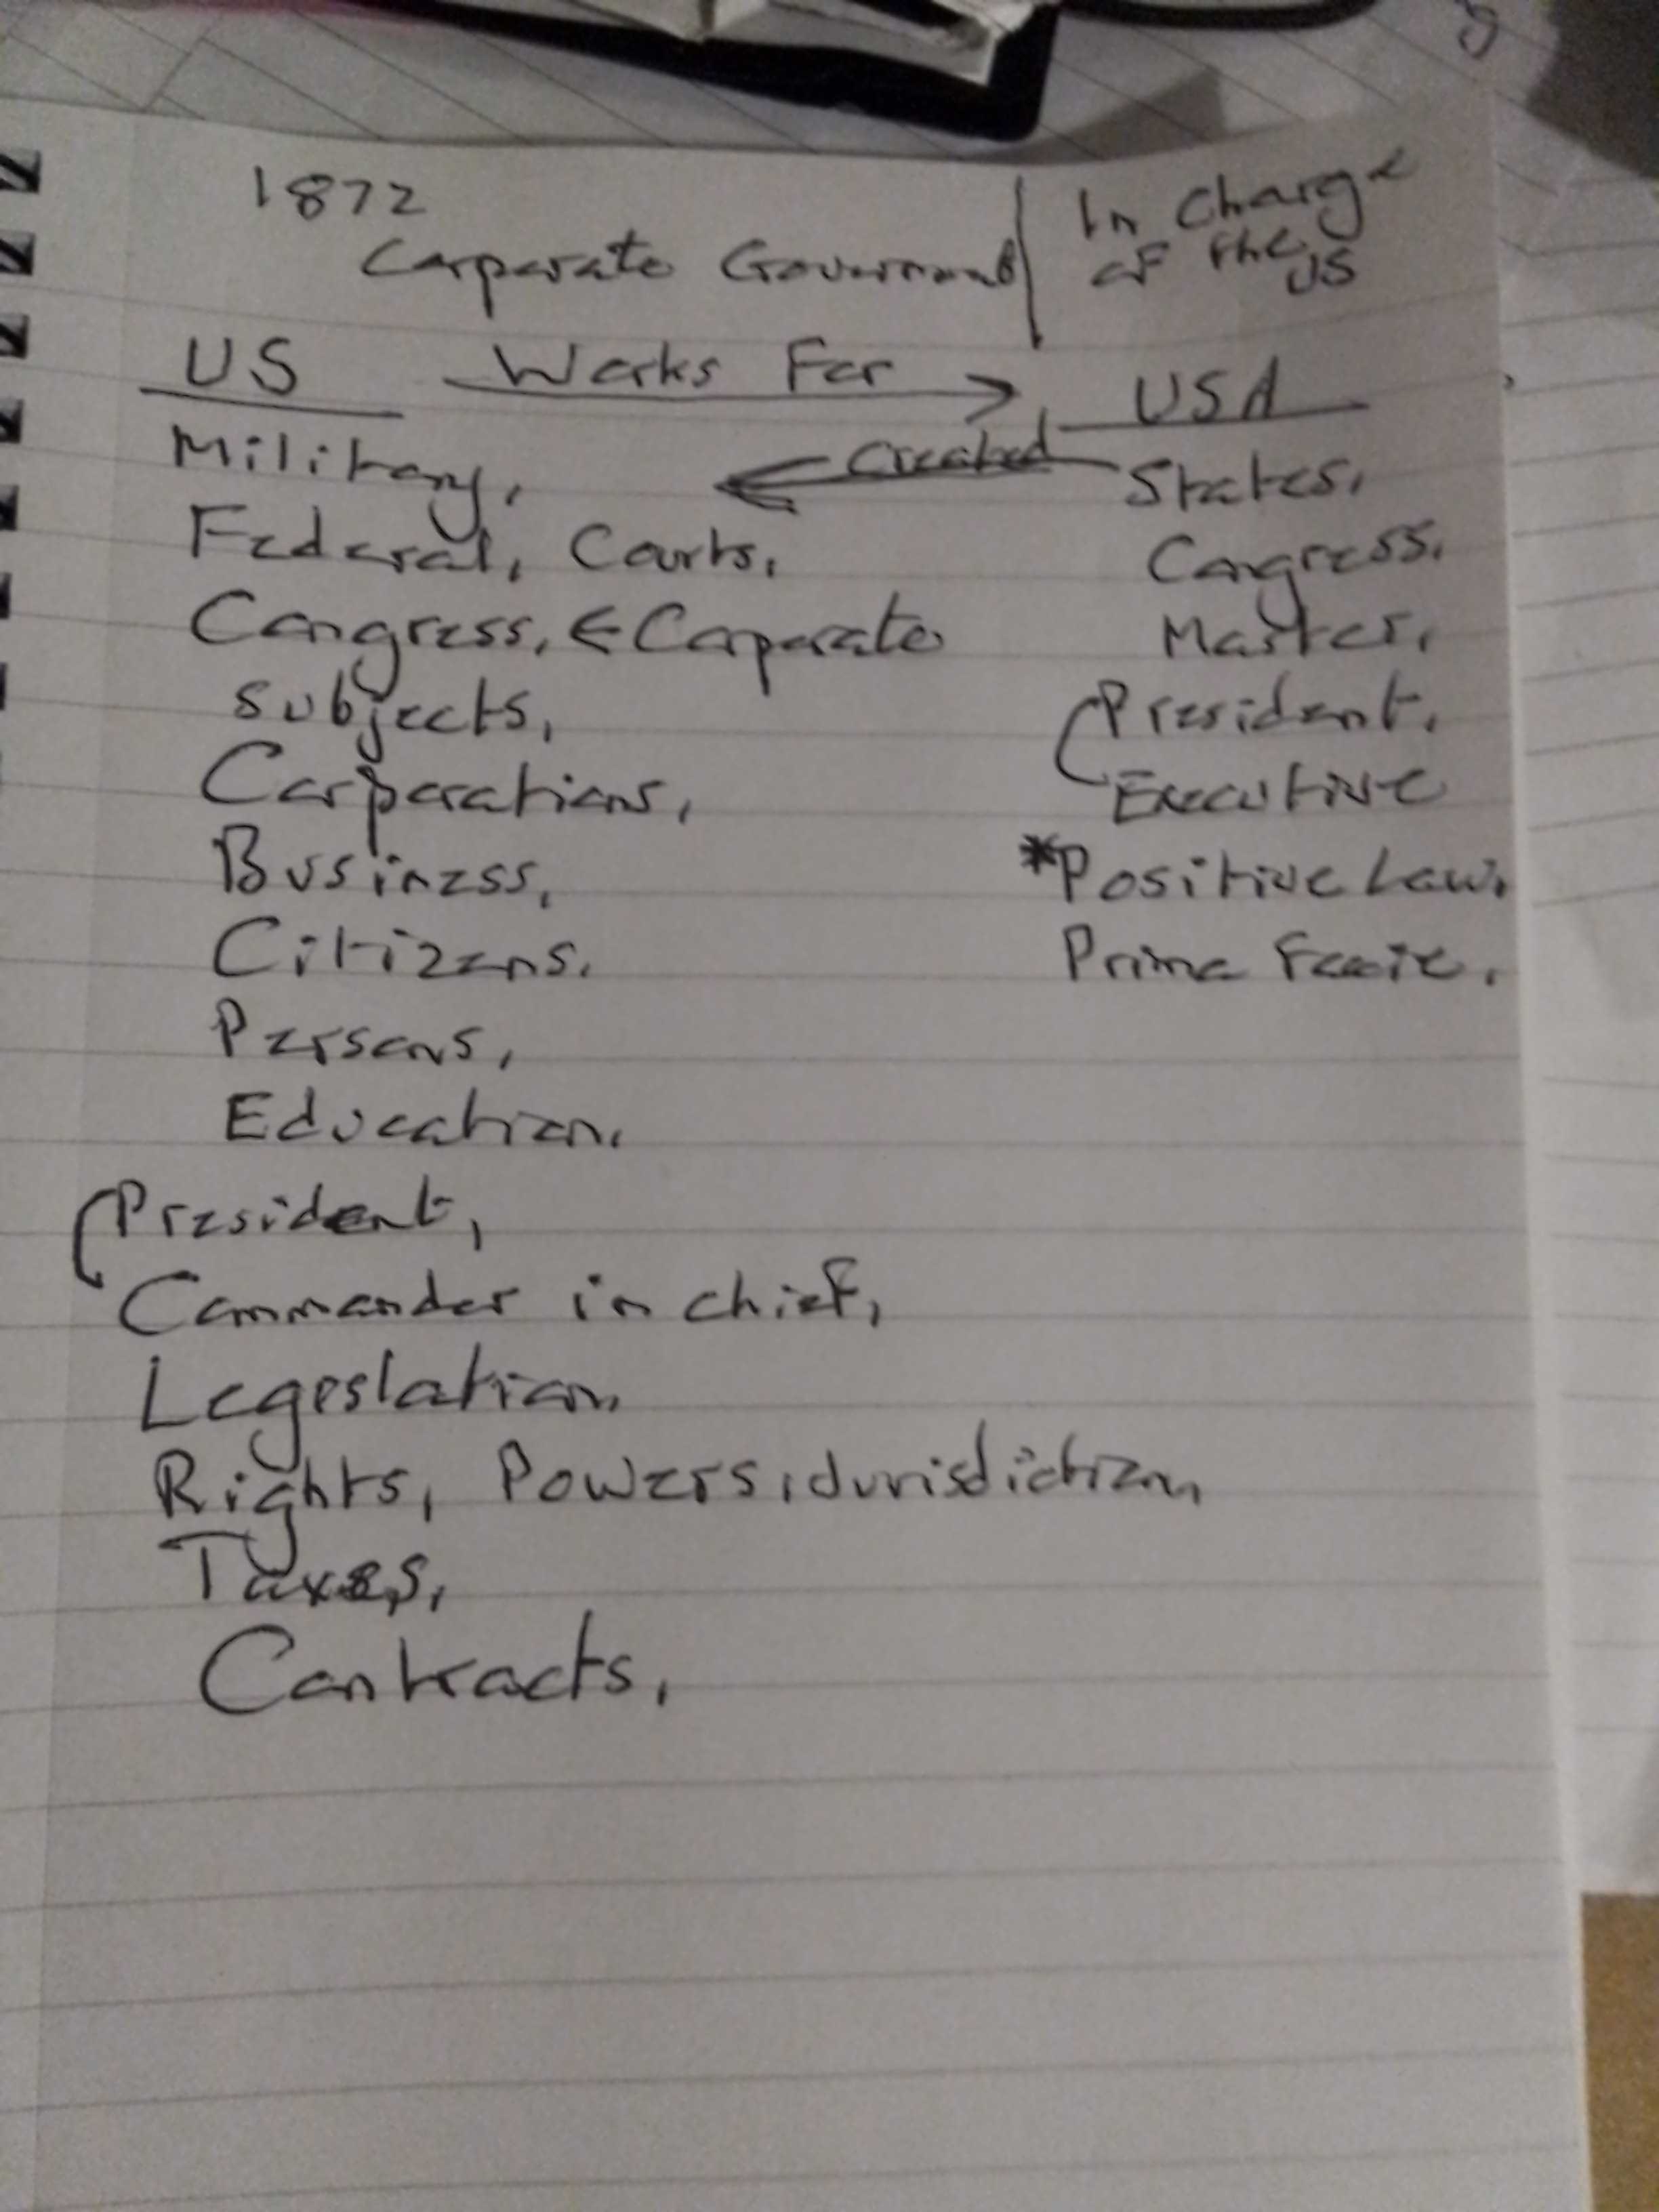 1872
Corporate Government
In Charge
of the
US
US Works For USA
created
Military, States,
Federal, Courts, Congress.
Congress, ← Corporate Master,
Subjects, President,
Corporations, Executive
Business, *Positive Law,
Citizens. Prima Facie.
Persons,
Education,
President,
Commander in chief,
Legeslation,
Rights, Powers, Jurisdiction,
Taxes,
Contracts,